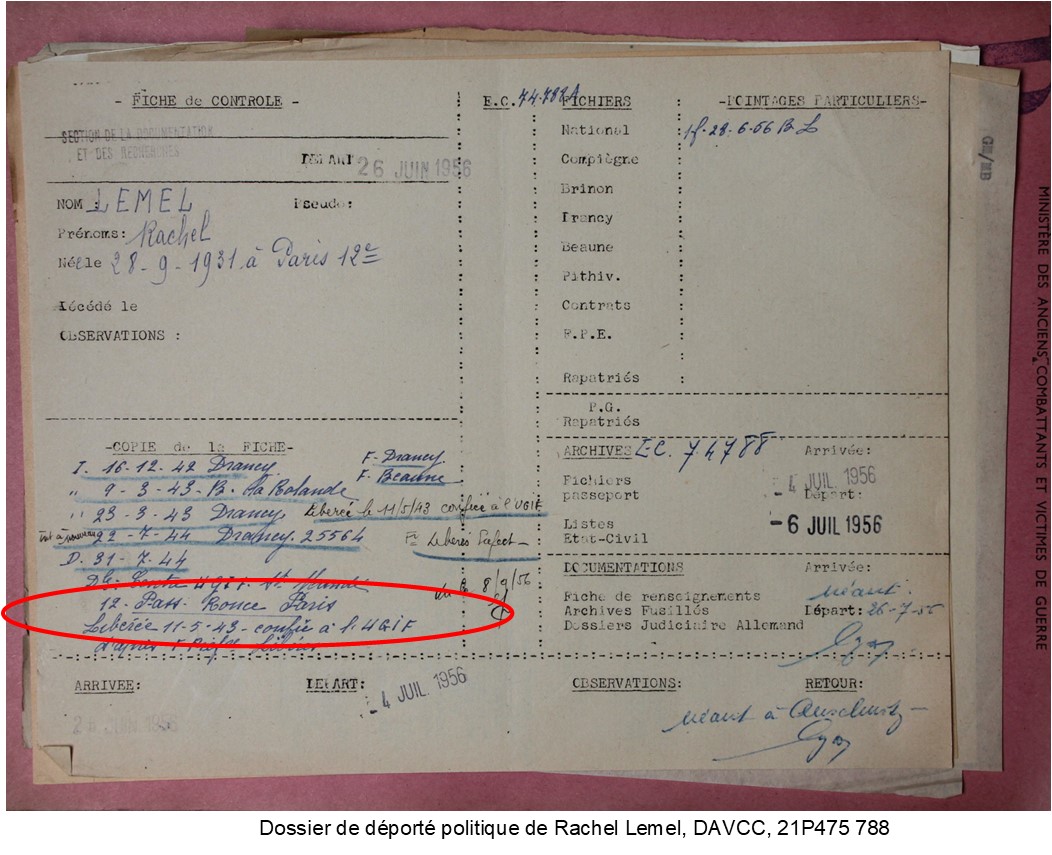 - FICHE de CONTROLE -
SECTION DE LA DOCUMENTATION
ET DES RECHERCHES
DEPART 26 JUIN 1956
NOM LEMEL Pseudo:
Prénoms: Rachel
Né/lle 28-9-1931 à Paris 12e
Décédé le
OBSERVATIONS :
-COPIE de la FICHE-
I. 16-12-42 Drancy F. Drancy
" 9-3-43 B. la Rolande F. Beaune
" 23-3-43 Drancy Liberée le 11/5/43 confiée à l'UGIF
Int à nouveau 22-7-44 Drancy 25564 Fe Libérés
D. 31-7-44
Centre UGIF St Mandé 8/9/56
12. Pass. Ronce Paris
Liberée 11-5-43 - confiée à l'UGIF
d'après F
E.C. 74.782A FICHIERS
National
Compiègne
Brinon
Drancy
Beaune
Pithiv.
Contrats
F.P.E.
Rapatriés
P.G.
Rapatriés
-POINTAGES PARTICULIERS-
28-6-56
ARCHIVES E.C. 74788 Arrivée:
-4 JUIL 1956
Fichiers
passeport Départ:
-6 JUIL 1956
Listes
Etat-Civil
DOCUMENTATIONS Arrivée:
Fiche de renseignements néant
Archives Fusillés Départ: 26-7-56
Dossiers Judiciaire Allemand
ARRIVEE: DEPART: OBSERVATIONS: RETOUR:
JUIN 1956
-4 JUIL. 1956
Néant à Auschwitz -
GM/MB
MINISTÈRE DES ANCIENS COMBATTANTS ET VICTIMES DE GUERRE
Dossier de déporté politique de Rachel Lemel, DAVCC, 21P475 788